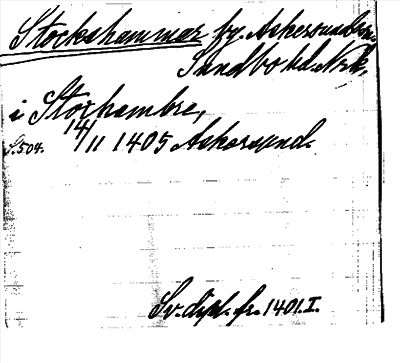 Stockshammar by. Askersunds sn.
Sundbo hd. Nrk.
i Stoxhambre,
S. 504. 14/11 1405 Askersund.
Sv. dipl. fr. 1401. I.